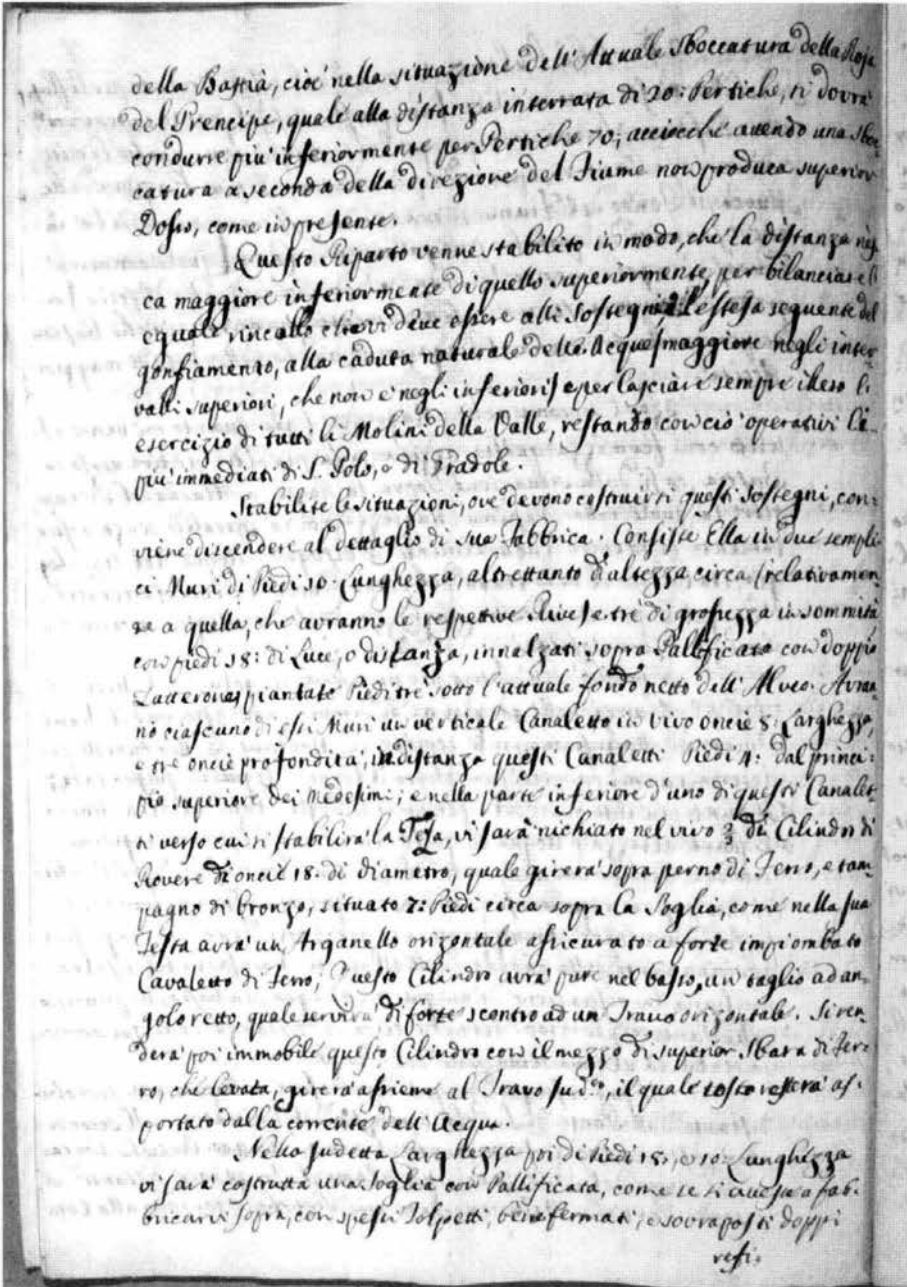 della Bastia, cioè nella situazione dell'Attuale Sboccatura della Roja
del Prencipe, quale alla distanza interrata di 20: Pertiche, si dovrà
condurre più inferiormente per Pertiche 70; acciocchè avendo una sboc-
catura a seconda della direzione del Fiume non produca superior
Dosso, come in presente.
Questo Riparto venne stabilito in modo, che la distanza
ca maggiore inferiormente di quello superiormente, per bilanciare
eguale rincallo che vi deve essere alli Sostegni l'estesa seguente del
gonfiamento, alla caduta naturale delle Acque maggiore negli inter-
valli superiori, che non è negli inferiori e per lasciare sempre illeso li
esercizio di tutti li Molini della Valle, restando con ciò operativi li
più immediati di S. Polo, e di Pradole.
Stabilite le situazioni, ove devono costruirsi questi Sostegni, con-
viene discendere al dettaglio di sua Fabbrica. Consiste Ella in due sempli-
ci Muri di Piedi 10. Lunghezza, altrettanto d'altezza circa (relativamen-
te a quella, che avranno le respettive Rive) e tre di grossezza in sommità
con piedi 18: di Luce, o distanza, innalzati sopra Pallificata con doppio
Latterovas, piantato Piedi tre sotto l'attuale fondo netto dell'Alveo. Avran-
no ciascuno di essi Muri un verticale Canaletto in vivo oncie 8: Larghezza,
e tre oncie profondità; in distanza questi Canaletti Piedi 4: dal princi-
pio superiore dei Medesimi; e nella parte inferiore d'uno di questi Canalet-
ti verso cui si stabilirà la Tesa, vi sarà nichiato nel vivo 3/4 di Cilindro di
Rovere di oncie 18. di diametro, quale girerà sopra perno di Ferro, e tam-
pagno di bronzo, situato 7: Piedi circa sopra la Soglia, come nella sua
Testa avrà un Arganello orizontale assicurato a forte impiombato
Cavaletto di Ferro, Questo Cilindro avrà pure nel basso, un taglio ad an-
golo retto, quale servirà di forte scontro ad un Travo orizontale. Si ren-
derà poi immobile questo Cilindro con il mezzo di superior Sbara di Fer-
ro, che levata, girerà assieme al Travo sud.º, il quale tosto resterà as-
portato dalla corrente dell'Acqua.
Nella sudetta Larghezza poi di Piedi 18:, e 10: Lunghezza
vi sarà costrutta una Soglia con Pallificata, come se si avesse a fab-
bricarvi sopra, con spessi Tolpetti, bene fermati, e sovraposti doppi